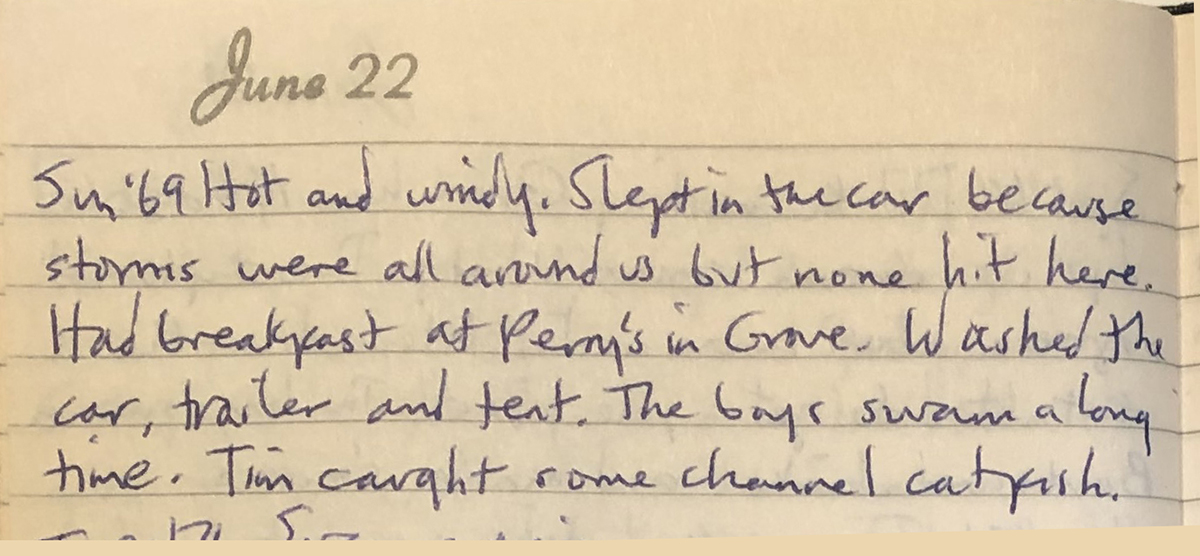 June 22
Sun '69 Hot and windy. Slept in the car because
storms were all around us but none hit here.
Had breakfast at Perry's in Grove. Washed the
car, trailer and tent. The boys swam a long
time. Tim caught some channel catfish.